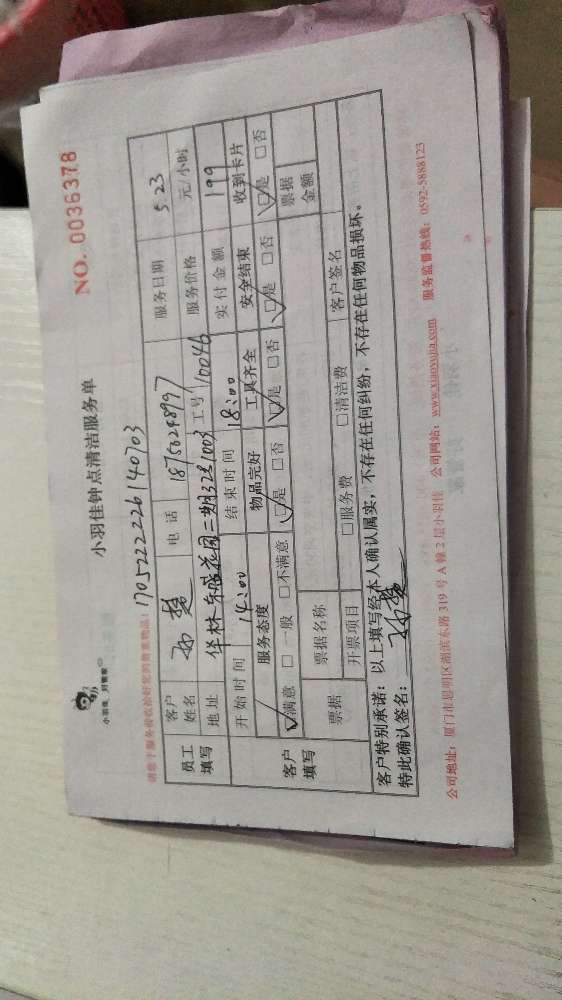 小羽佳，好管家
小羽佳钟点清洁服务单
NO. 0036378
请您于服务前收拾好您的贵重物品！
170522222226140703
员工填写 客户姓名 电话 18750248997 服务日期 5.23
地址 华林东盛花园二期 工号 110046 服务价格 元/小时
开始时间 14:00 结束时间 18:00 实付金额 199
客户填写 服务态度 物品完好 工具齐全 安全结束 收到卡片
☑满意 □一般 □不满意 ☑是 □否 ☑是 □否 ☑是 □否 ☑是 □否
票据 票据名称 票据金额
开票项目 □服务费 □清洁费 客户签名
客户特别承诺：以上填写经本人确认属实，不存在任何纠纷，不存在任何物品损坏。
特此确认签名：
公司地址：厦门市思明区湖滨东路319号A幢2层小羽佳 公司网站：www.xiaoyujia.com 服务监督热线：0592-5888123